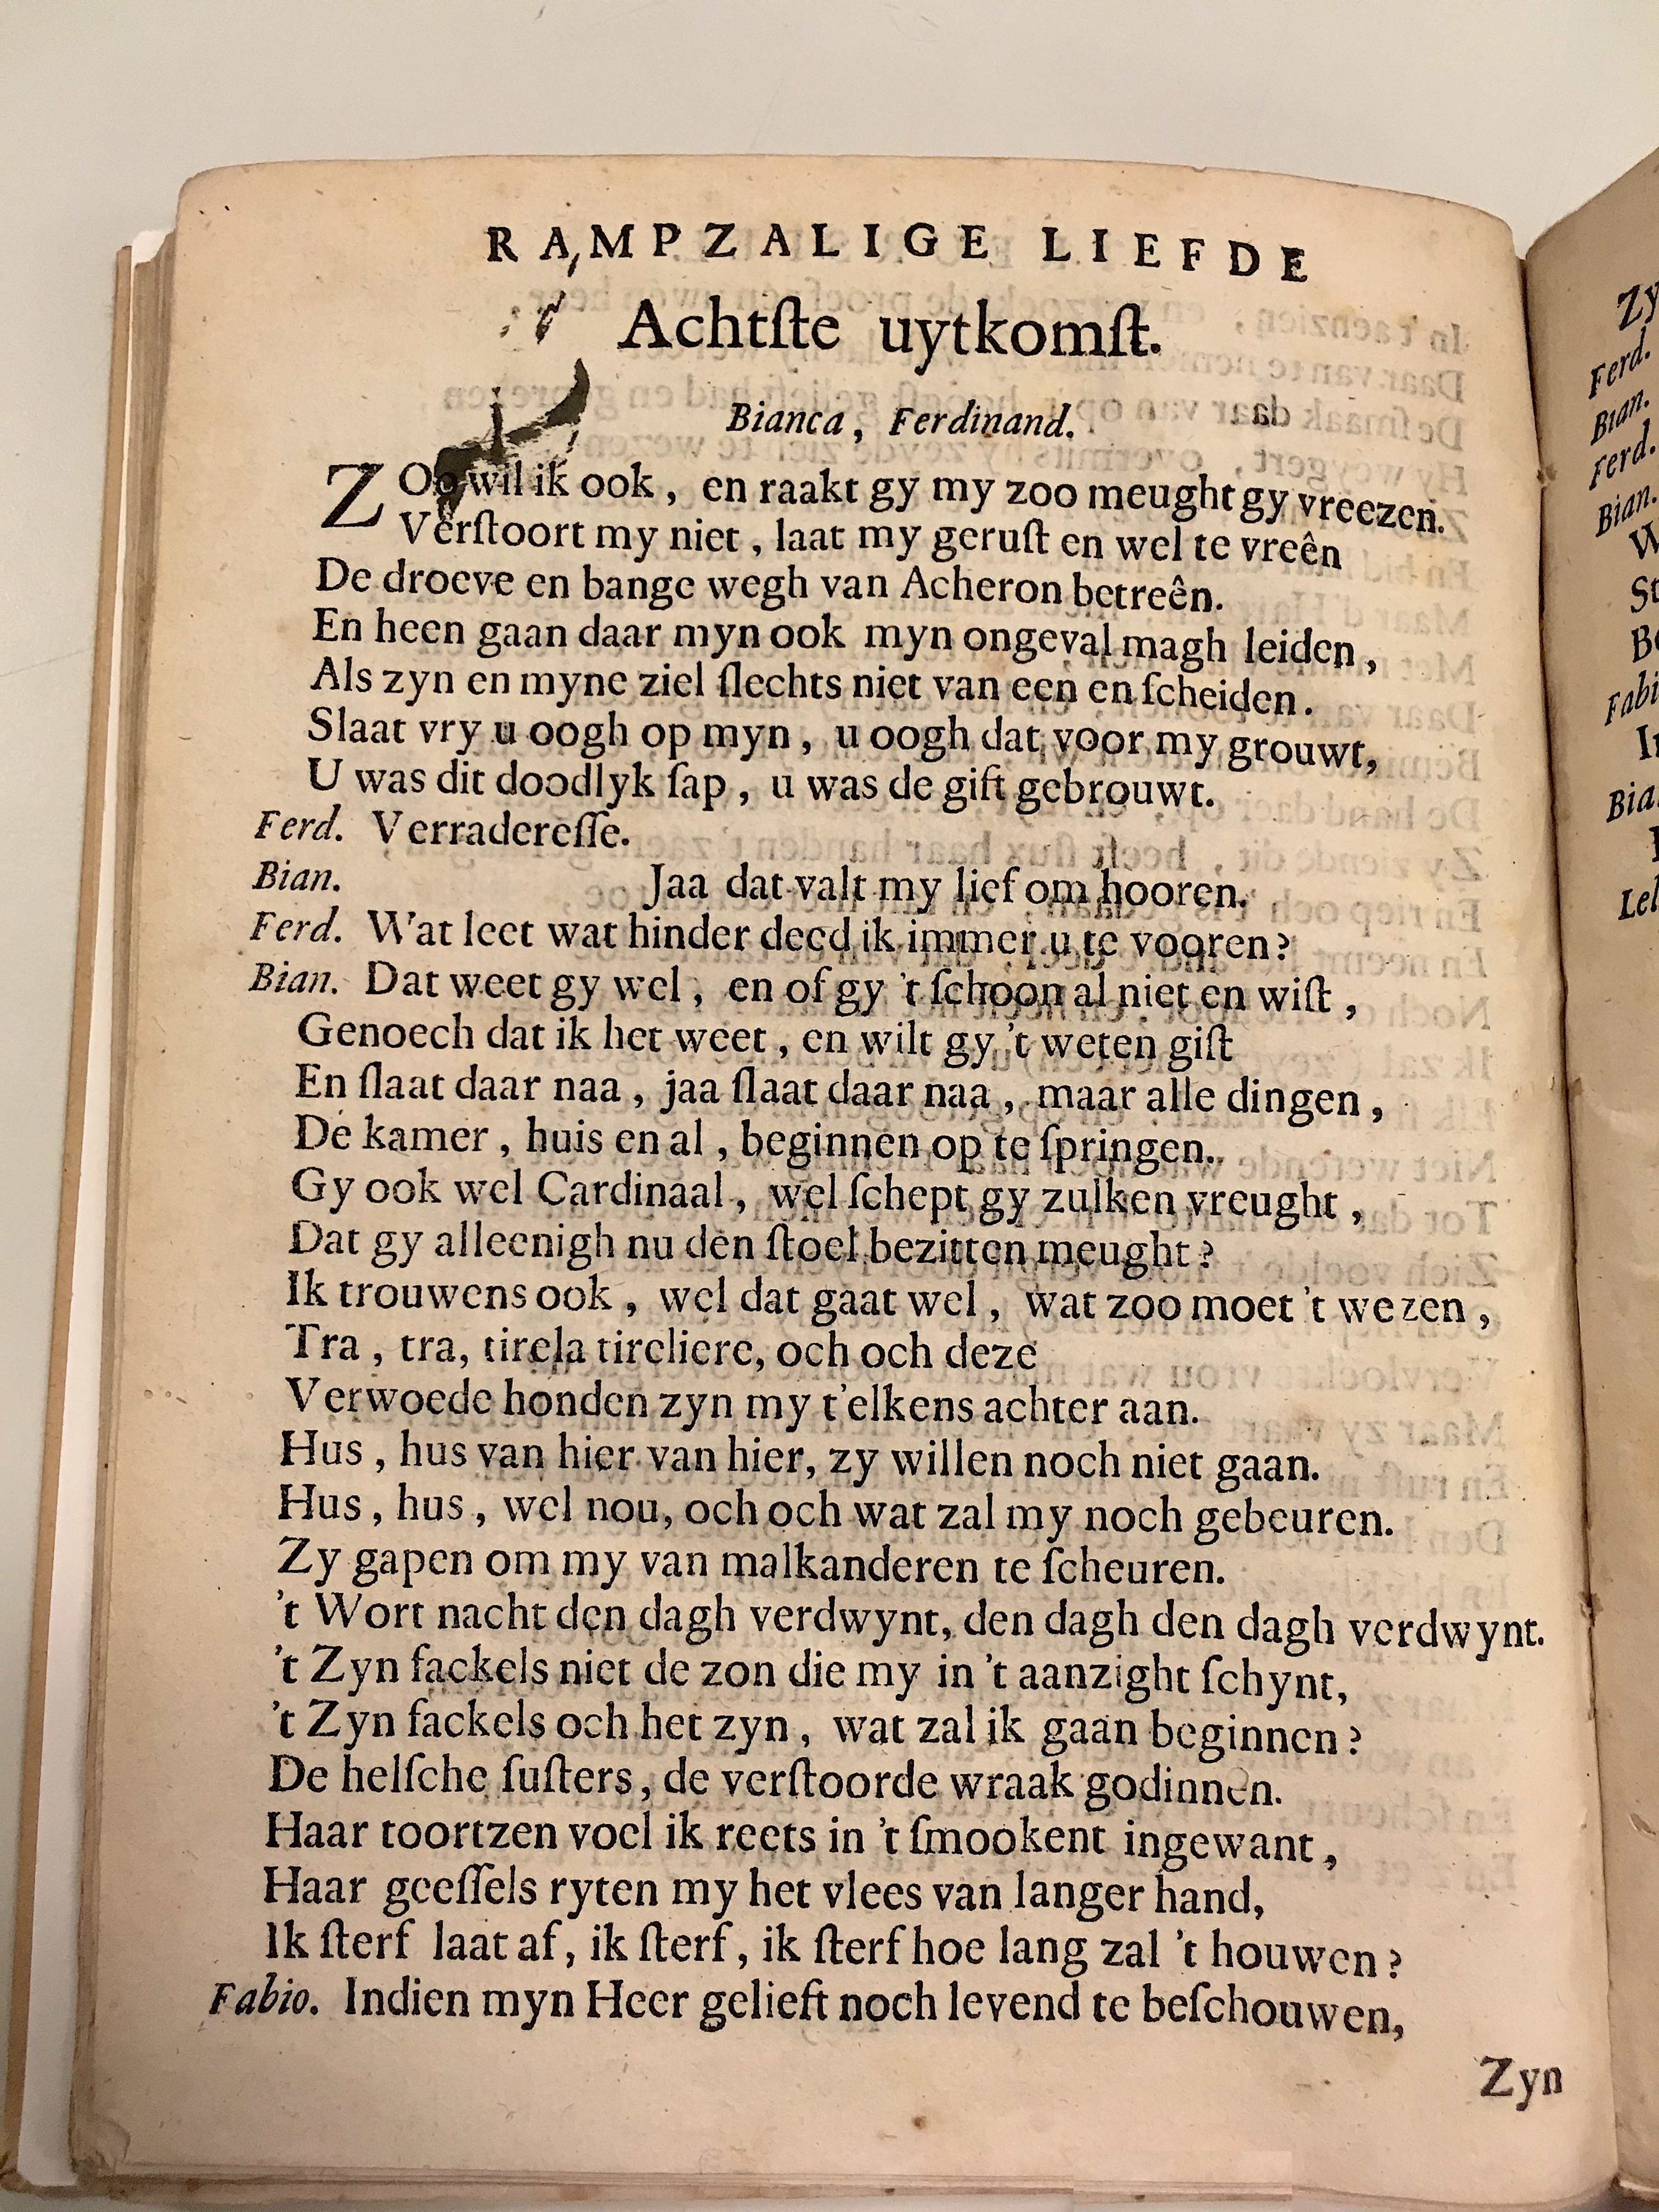 RAMPZALIGE LIEFDE
Achtſte uytkomſt.
Bianca, Ferdinand.
ZOo wil ik ook, en raakt gy my zoo meught gy vreezen.
Verſtoort my niet, laat my geruſt en wel te vreên
De droeve en bange wegh van Acheron betreên.
En heen gaan daar myn ook myn ongeval magh leiden,
Als zyn en myne ziel ſlechts niet van een en ſcheiden.
Slaat vry u oogh op myn, u oogh dat voor my grouwt,
U was dit doodlyk ſap, u was de gift gebrouwt.
Ferd. Verradereſſe.
Bian. Jaa dat valt my lief om hooren.
Ferd. Wat leet wat hinder deed ik immer u te vooren?
Bian. Dat weet gy wel, en of gy 't ſchoon al niet en wiſt,
Genoech dat ik het weet, en wilt gy 't weten giſt
En ſlaat daar naa, jaa ſlaat daar naa, maar alle dingen,
De kamer, huis en al, beginnen op te ſpringen.
Gy ook wel Cardinaal, wel ſchept gy zulken vreught,
Dat gy alleenigh nu den ſtoel bezitten meught?
Ik trouwens ook, wel dat gaat wel, wat zoo moet 't wezen,
Tra, tra, tirela tireliere, och och deze
Verwoede honden zyn my t'elkens achter aan.
Hus, hus van hier van hier, zy willen noch niet gaan.
Hus, hus, wel nou, och och wat zal my noch gebeuren.
Zy gapen om my van malkanderen te ſcheuren.
't Wort nacht den dagh verdwynt, den dagh den dagh verdwynt.
't Zyn fackels niet de zon die my in 't aanzight ſchynt,
't Zyn fackels och het zyn, wat zal ik gaan beginnen?
De helſche ſuſters, de verſtoorde wraak godinnen.
Haar toortzen voel ik reets in 't ſmookent ingewant,
Haar geeſſels ryten my het vlees van langer hand,
Ik ſterf laat af, ik ſterf, ik ſterf hoe lang zal 't houwen?
Fabio. Indien myn Heer gelieft noch levend te beſchouwen,
Zyn
Zy
Ferd.
Bian.
Ferd.
Bian.
W
St
Be
Fabi
Bia.
Lel